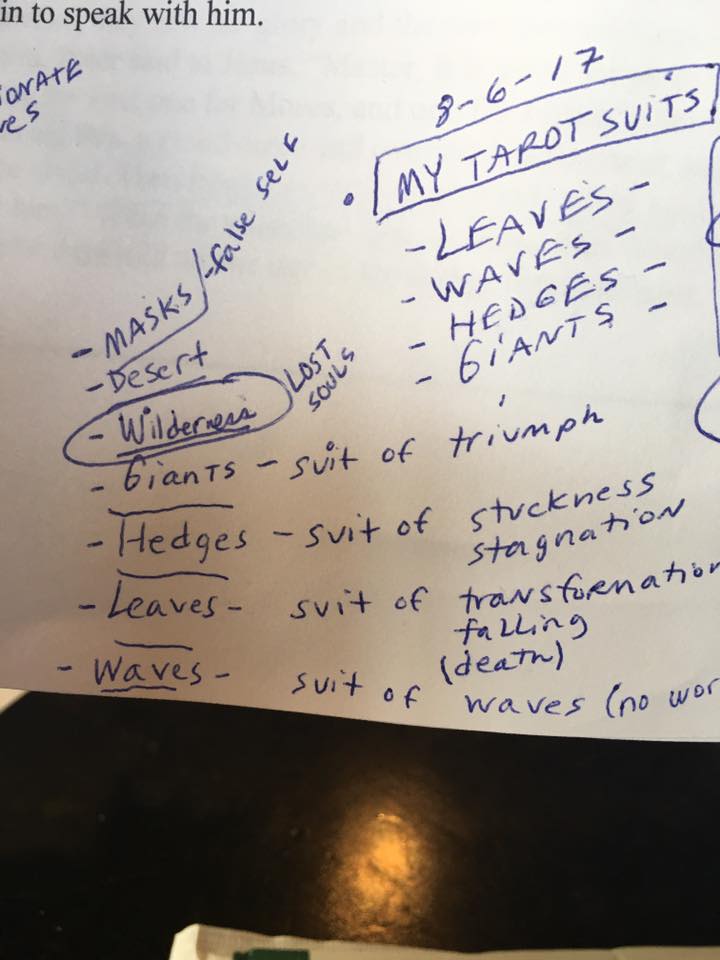 in to speak with him.
8-6-17
MY TAROT SUITS
- LEAVES -
- WAVES -
- HEDGES -
- GIANTS -
- MASKS - false self
- Desert
- Wilderness LOST SOULS
- Giants - suit of triumph
- Hedges - suit of stuckness
stagnation
- Leaves - suit of transformation
falling
(death)
- Waves - suit of waves (no wor